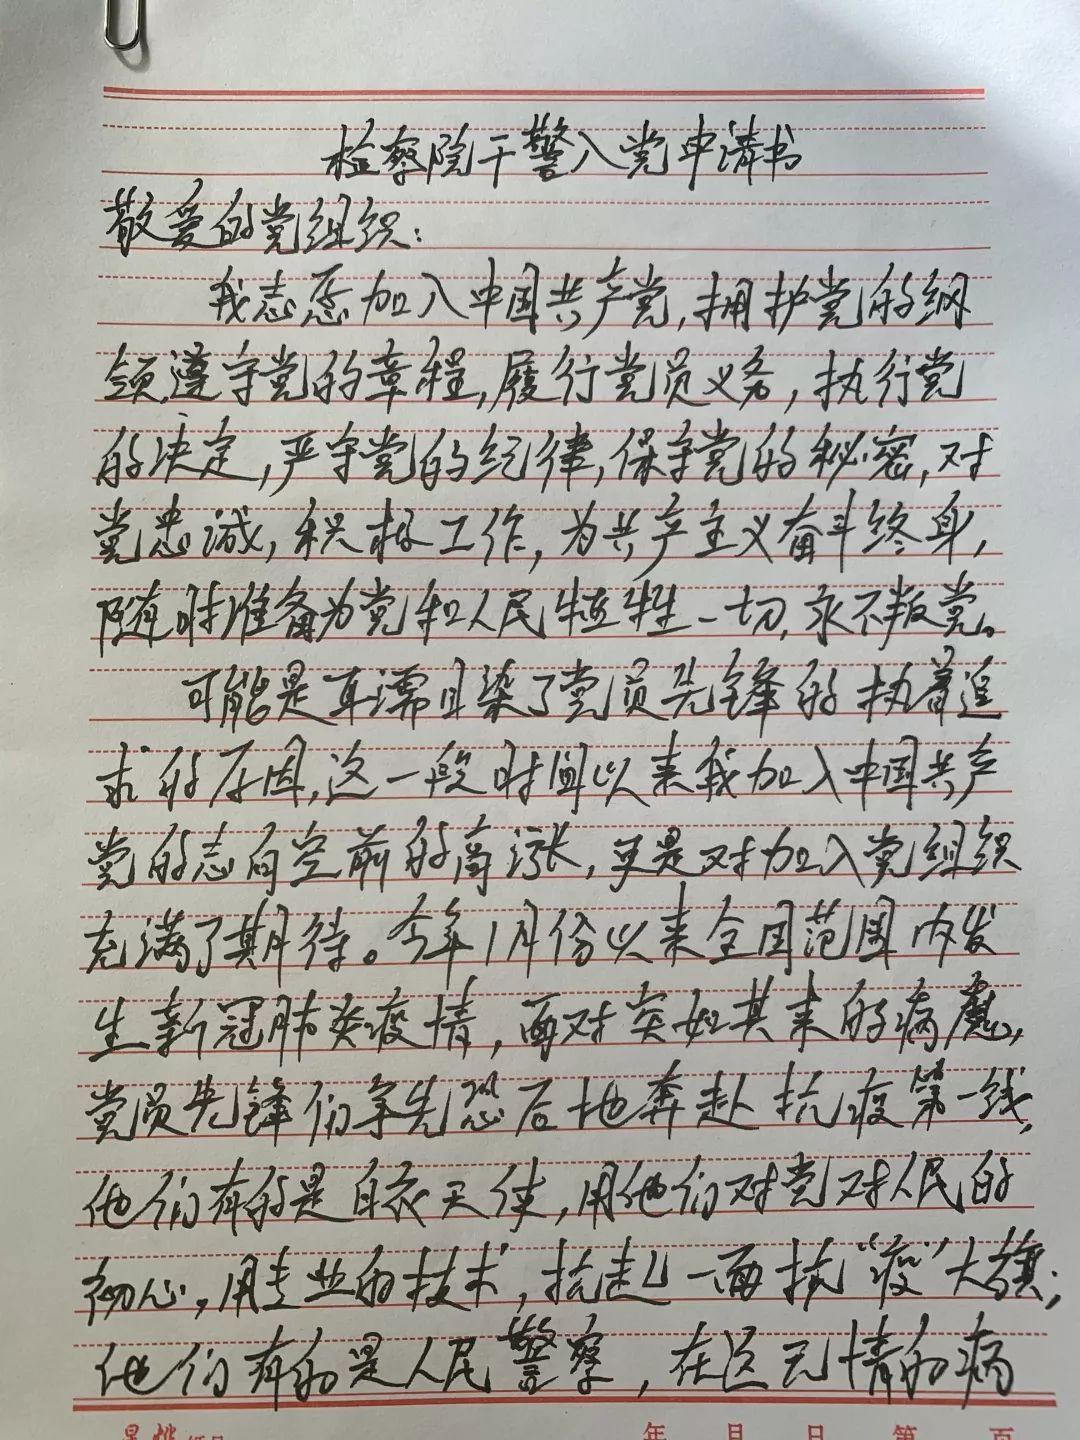 检察院干警入党申请书
敬爱的党组织:
我志愿加入中国共产党,拥护党的纲
领,遵守党的章程,履行党员义务,执行党
的决定,严守党的纪律,保守党的秘密,对
党忠诚,积极工作,为共产主义奋斗终身,
随时准备为党和人民牺牲一切,永不叛党。
可能是耳濡目染了党员先锋的执着追
求的原因,这一段时间以来我加入中国共产
党的志向空前的高涨,更是对加入党组织
充满了期待。今年1月份以来全国范围内发
生新冠肺炎疫情,面对突如其来的病魔,
党员先锋们争先恐后地奔赴抗疫第一线,
他们有的是白衣天使,用他们对党对人民的
初心,用专业的技术,抗起一面抗“疫”大旗;
他们有的是人民警察,在这无情的病
年 月 日 第 页